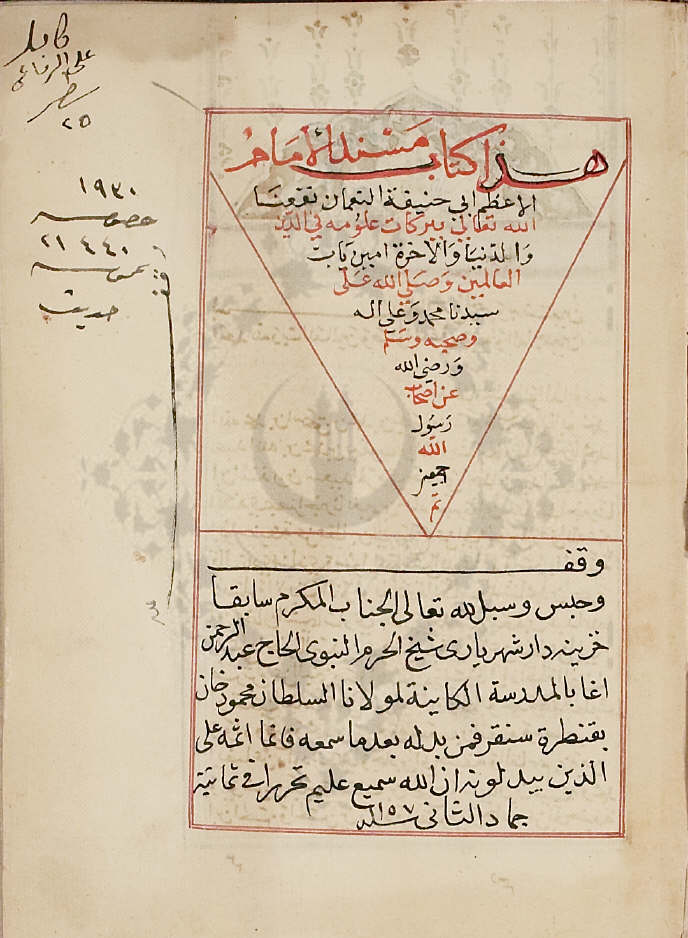 هذا كتاب مسند الامام
الاعظم ابي حنيفة النعمان نفعنا
الله تعالى ببركات علومه في الدين
والدنيا والاخرة امين يا رب
العالمين وصلى الله على
سيدنا محمد وعلى اله
وصحبه وسلم
ورضي الله
عن اصحاب
رسول
الله
اجمعين
تم
وقف
وحبس وسبل لله تعالى الجناب المكرم سابقا
خزينه دار شهرياري شيخ الحرم النبوي الحاج عبد الرحمن
اغا بالمدرسة الكاينة لمولانا السلطان محمود خان
بقنطرة سنقر فمن بدله بعدما سمعه فانما اثمه على
الذين يبدلونه ان الله سميع عليم تحريرا في ثمانية
جماد الثاني سنة ١١٥٧
على الرفاعي
٢٥
١٩٣٠
خصوصيه
٢١٤٤٠
عموميه
حديث